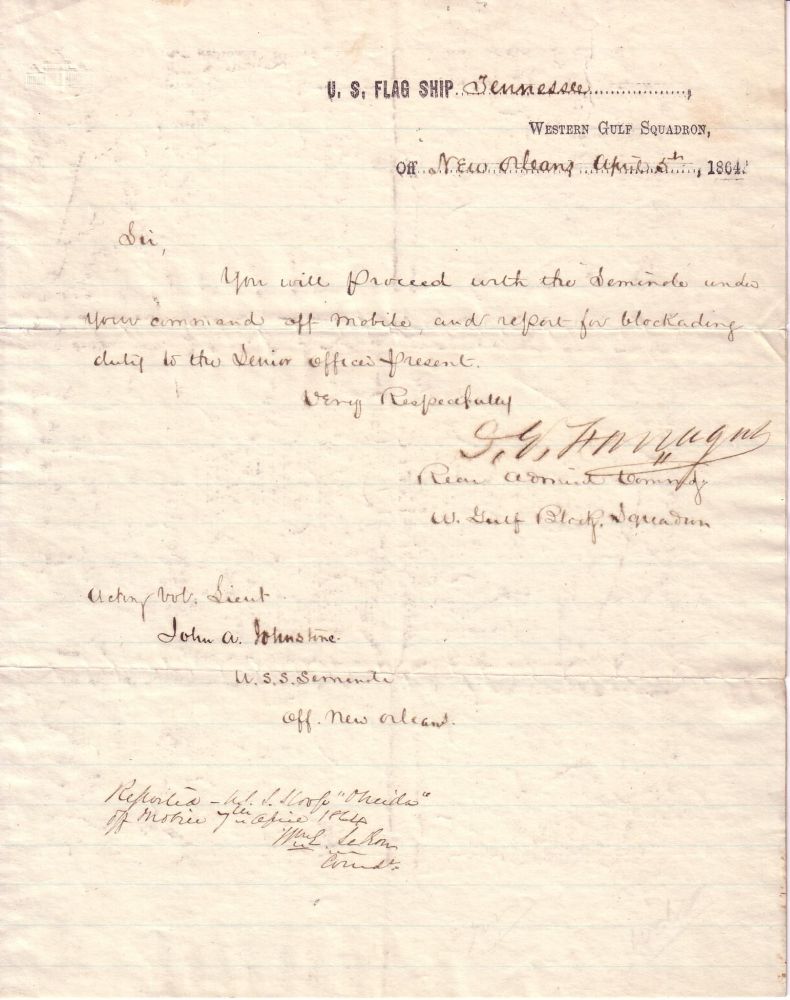 U. S. FLAG SHIP Tennessee,
WESTERN GULF SQUADRON,
Off New Orleans April 5th, 1864.
Sir,
You will proceed with the Seminole under
your command off Mobile, and report for blockading
duty to the Senior officer present.
Very Respectfully
D. G. Farragut
Rear Admiral Commdg
W. Gulf Block. Squadron
Acting Vol. Lieut
John A. Johnstone
U.S.S. Seminole
Off. New Orleans.
Reported - U.S. Sloop "Oneida"
off Mobile 7th April 1864
Comdt